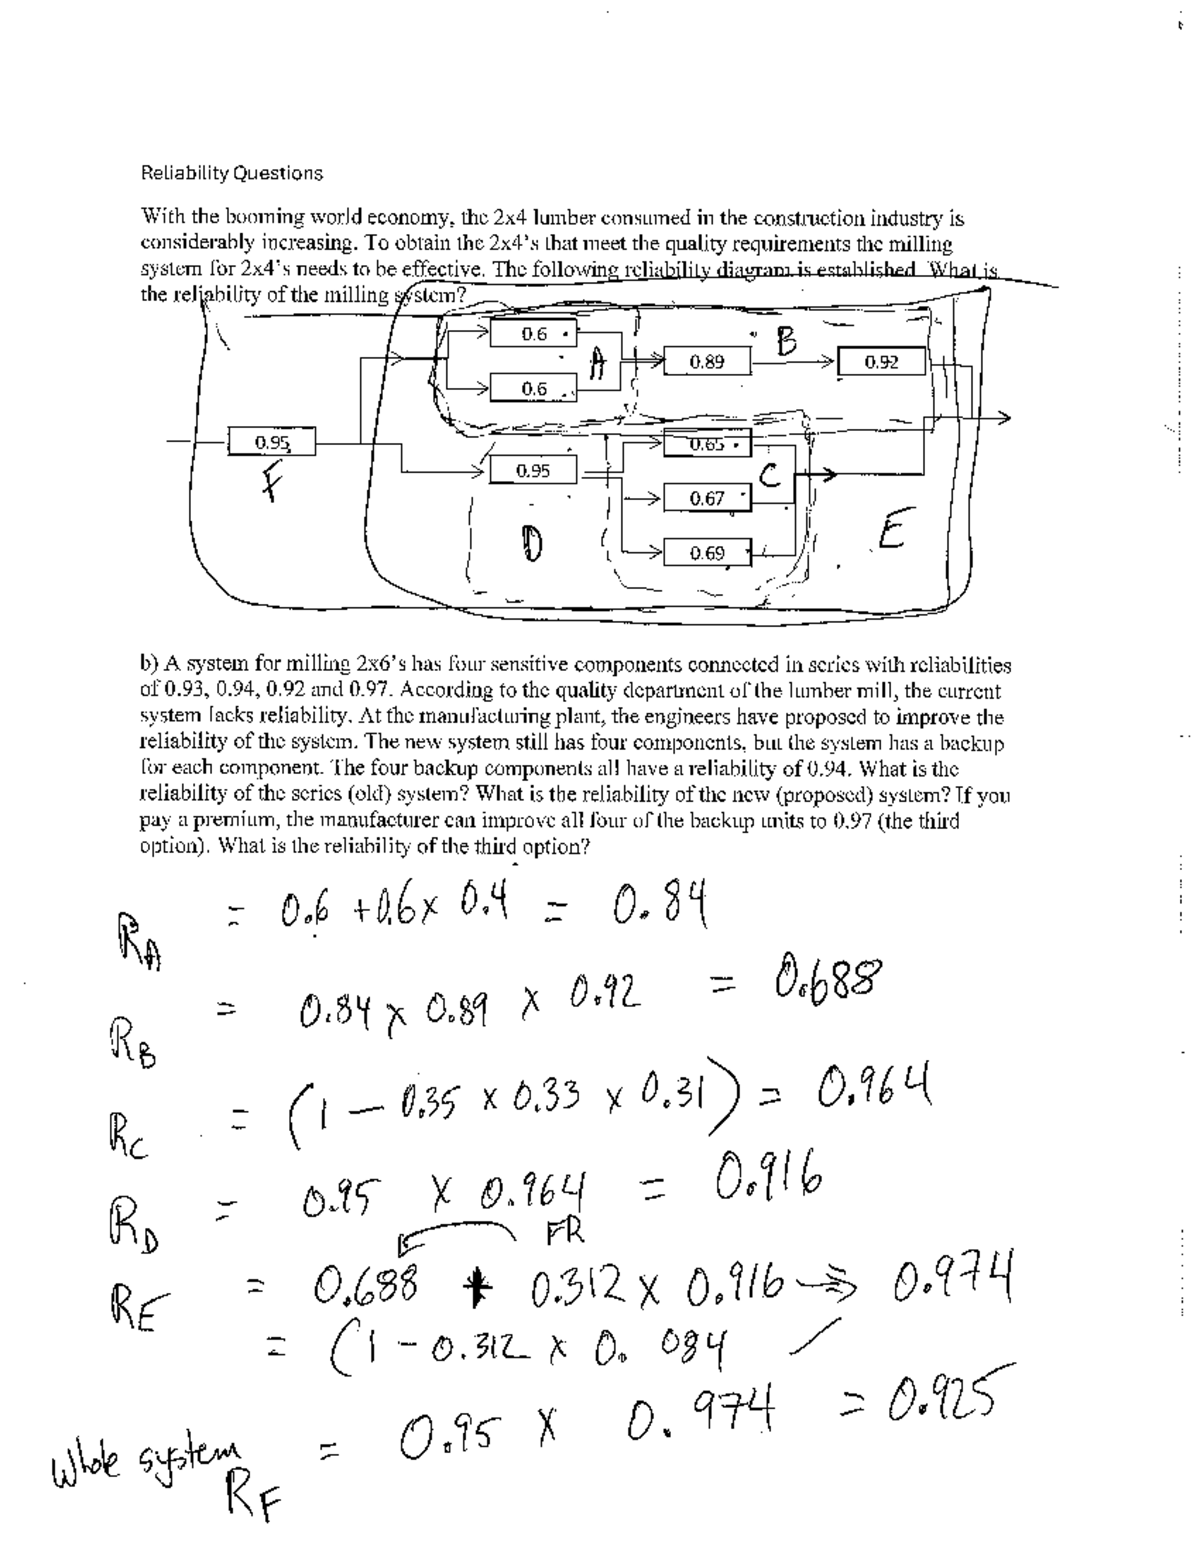 Reliability Questions
With the booming world economy, the 2x4 lumber consumed in the construction industry is
considerably increasing. To obtain the 2x4's that meet the quality requirements the milling
system for 2x4's needs to be effective. The following reliability diagram is established. What is
the reliability of the milling system?
0.6
A
0.6
0.89
B
0.92
0.95
F
0.95
D
0.65
C
0.67
0.69
E
b) A system for milling 2x6's has four sensitive components connected in series with reliabilities
of 0.93, 0.94, 0.92 and 0.97. According to the quality department of the lumber mill, the current
system lacks reliability. At the manufacturing plant, the engineers have proposed to improve the
reliability of the system. The new system still has four components, but the system has a backup
for each component. The four backup components all have a reliability of 0.94. What is the
reliability of the series (old) system? What is the reliability of the new (proposed) system? If you
pay a premium, the manufacturer can improve all four of the backup units to 0.97 (the third
option). What is the reliability of the third option?
RA = 0.6 + 0.6 x 0.4 = 0.84
RB = 0.84 x 0.89 x 0.92 = 0.688
RC = (1 - 0.35 x 0.33 x 0.31) = 0.964
RD = 0.95 x 0.964 = 0.916
FR
RE = 0.688 + 0.312 x 0.916 ⇒ 0.974
= (1 - 0.312 x 0.084
Whole system RF = 0.95 x 0.974 = 0.925